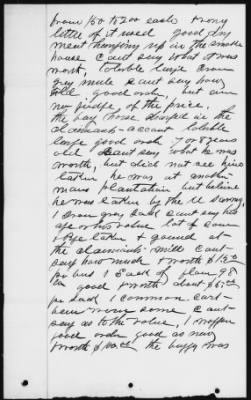 from 150 to 200 each & very
little of it used good dry
meat hanging up in the smoke
house cant say what it was
worth, Toleble large brown
grey mule cant say how
old good order, but aim
no judge of the price.
the bay horse charged in the
claimants account toleble
large good order 7 or 8 years
old cant say what he was
worth, but did not see him
taken he was at another
mans plantation but believe
he was taken by the U S army,
1 Iron grey cant say his
age or his value. lot of corn
& taken & ground at
the claimants mill cant
say how much & worth $1.50
per bus 1 Sack of flour 98
lbs good worth about $5.00
per hund 1 common cart
been worn some cant
say as to the value, 1
good order good as new
& worth $100.00 the buggy was